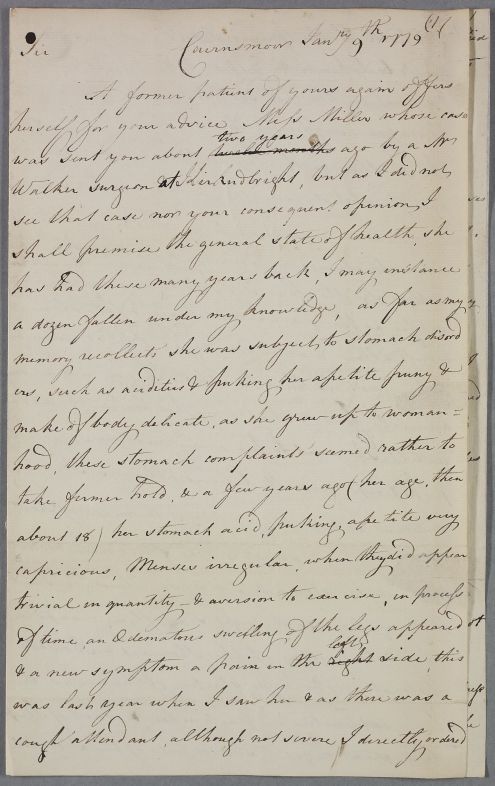 (1)
Sir Cairnsmoor Janry 9th 1779
A former patient of yours again offers
herself for your advice Miss Miller whose case
was sent you about twelve months two years ago by a Mr
Walker surgeon at Kirkudbright, but as I did not
see that case nor your consequent opinion, I
shall premise the general state of health she
has had these many years back, I may instance
a dozen fallen under my knowledge, as far as my
memory recollects she was subject to stomach disord
ers, such as acidities & puking her apetite puny &
make of body delicate, as she grew up to woman=
hood, these stomach complaints seemed rather to
take firmer hold, & a few years ago (her age, then
about 18) her stomach acid, puking, apetite very
capricious, Menses irregular, when they did appear
trivial in quantity – & aversion to exercise, in process
of time, an Œdematous swelling of the legs appeared
& a new symptom a pain in the right left side, this
was last year when I saw her & as there was a
cough attendant, although not severe I directly ordered